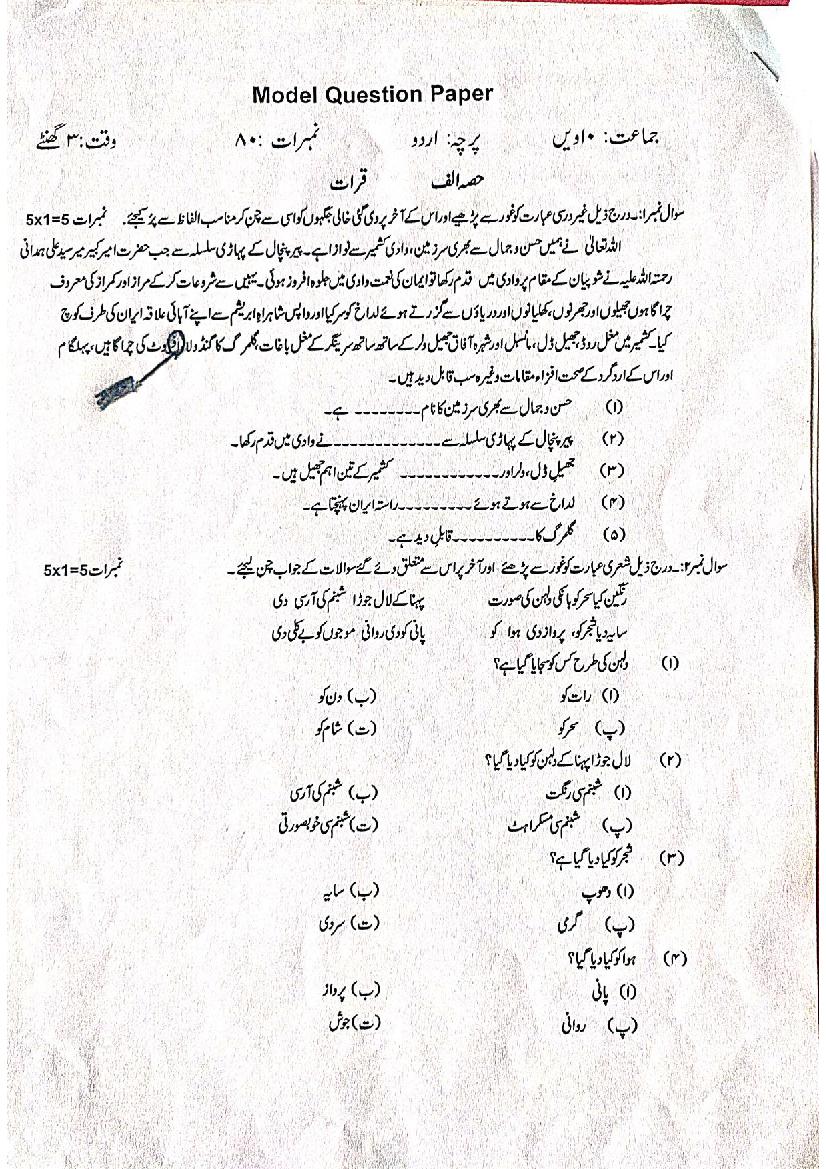 Model Question Paper
جماعت: ۱۰ویں پرچہ: اردو نمبرات: ۸۰ وقت: ۳ گھنٹے
حصہ الف قرات
سوال نمبر۱:۔ درج ذیل غیر درسی عبارت کو غور سے پڑھیے اور اس کے آخر پر دی گئی خالی جگہوں کو اسی سے چن کر مناسب الفاظ سے پُر کیجئے۔ نمبرات 5x1=5
اللہ تعالیٰ نے ہمیں حسن و جمال سے بھری سرزمین، وادی کشمیر سے نوازا ہے۔ پیر پنچال کے پہاڑی سلسلہ سے جب حضرت امیر کبیر میر سید علی ہمدانی
رحمتہ اللہ علیہ نے شوپیان کے مقام پر وادی میں قدم رکھا تو ایمان کی نعمت وادی میں جلوہ افروز ہوئی۔ یہیں سے شروعات کر کے مراز اور کمراز کی معروف
چراگاہوں جھیلوں اور جھرنوں، کھلیانوں اور دریاؤں سے گزرتے ہوئے لداخ کو سر کیا اور واپس شاہراہ ابریشم سے اپنے آبائی علاقہ ایران کی طرف کوچ
کیا۔ کشمیر میں مغل روڈ، جھیل ڈل، مانسبل اور شہرہ آفاق جھیل ولر کے ساتھ ساتھ سرینگر کے مغل باغات، گلمرگ کا گنڈولا، کی چراگاہیں، پہلگام
اور اس کے ارد گرد کے صحت افزاء مقامات وغیرہ سب قابل دید ہیں۔
(۱) حسن و جمال سے بھری سرزمین کا نام-------- ہے۔
(۲) پیر پنچال کے پہاڑی سلسلہ سے-------------نے وادی میں قدم رکھا۔
(۳) جھیل ڈل، ولر اور------------ کشمیر کے تین اہم جھیل ہیں۔
(۴) لداخ سے ہوتے ہوئے---------راستہ ایران پہنچتا ہے۔
(۵) گلمرگ کا----------قابلِ دید ہے۔
سوال نمبر۲:۔ درج ذیل شعری عبارت کو غور سے پڑھئے اور آخر پر اس سے متعلق دئے گئے سوالات کے جواب چن لیجئے۔ نمبرات 5x1=5
رنگین کیا سحر کو بانکی دلہن کی صورت پہنا کے لال جوڑا شبنم کی آرسی دی
سایہ دیا شجر کو، پرواز دی ہوا کو پانی کو دی روانی موجوں کو بے کلی دی
(۱) دلہن کی طرح کس کو سجایا گیا ہے؟
(ا) رات کو (ب) دن کو
(پ) سحر کو (ت) شام کو
(۲) لال جوڑا پہنا کے دلہن کو کیا دیا گیا؟
(ا) شبنم سی رنگت (ب) شبنم کی آرسی
(پ) شبنم سی مسکراہٹ (ت) شبنم سی خوبصورتی
(۳) شجر کو کیا دیا گیا ہے؟
(ا) دھوپ (ب) سایہ
(پ) گرمی (ت) سردی
(۴) ہوا کو کیا دیا گیا؟
(ا) پانی (ب) پرواز
(پ) روانی (ت) جوش